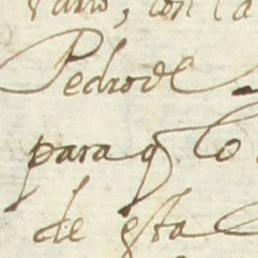 rario, con la
Pedro de
para q lo
de esta